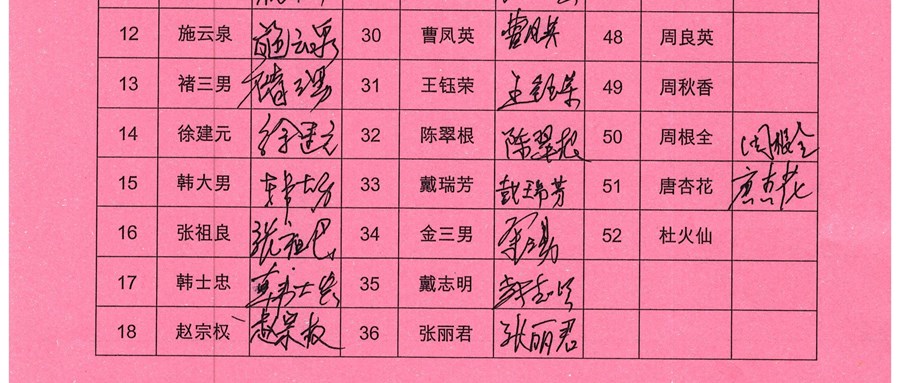 12 施云泉 施云泉 30 曹凤英 曹凤英 48 周良英
13 褚三男 褚三男 31 王钰荣 王钰荣 49 周秋香
14 徐建元 徐建元 32 陈翠根 陈翠根 50 周根全 周根全
15 韩大男 韩大男 33 戴瑞芳 戴瑞芳 51 唐杏花 唐杏花
16 张祖良 张祖良 34 金三男 金三男 52 杜火仙
17 韩士忠 韩士忠 35 戴志明 戴志明
18 赵宗权 赵宗权 36 张丽君 张丽君